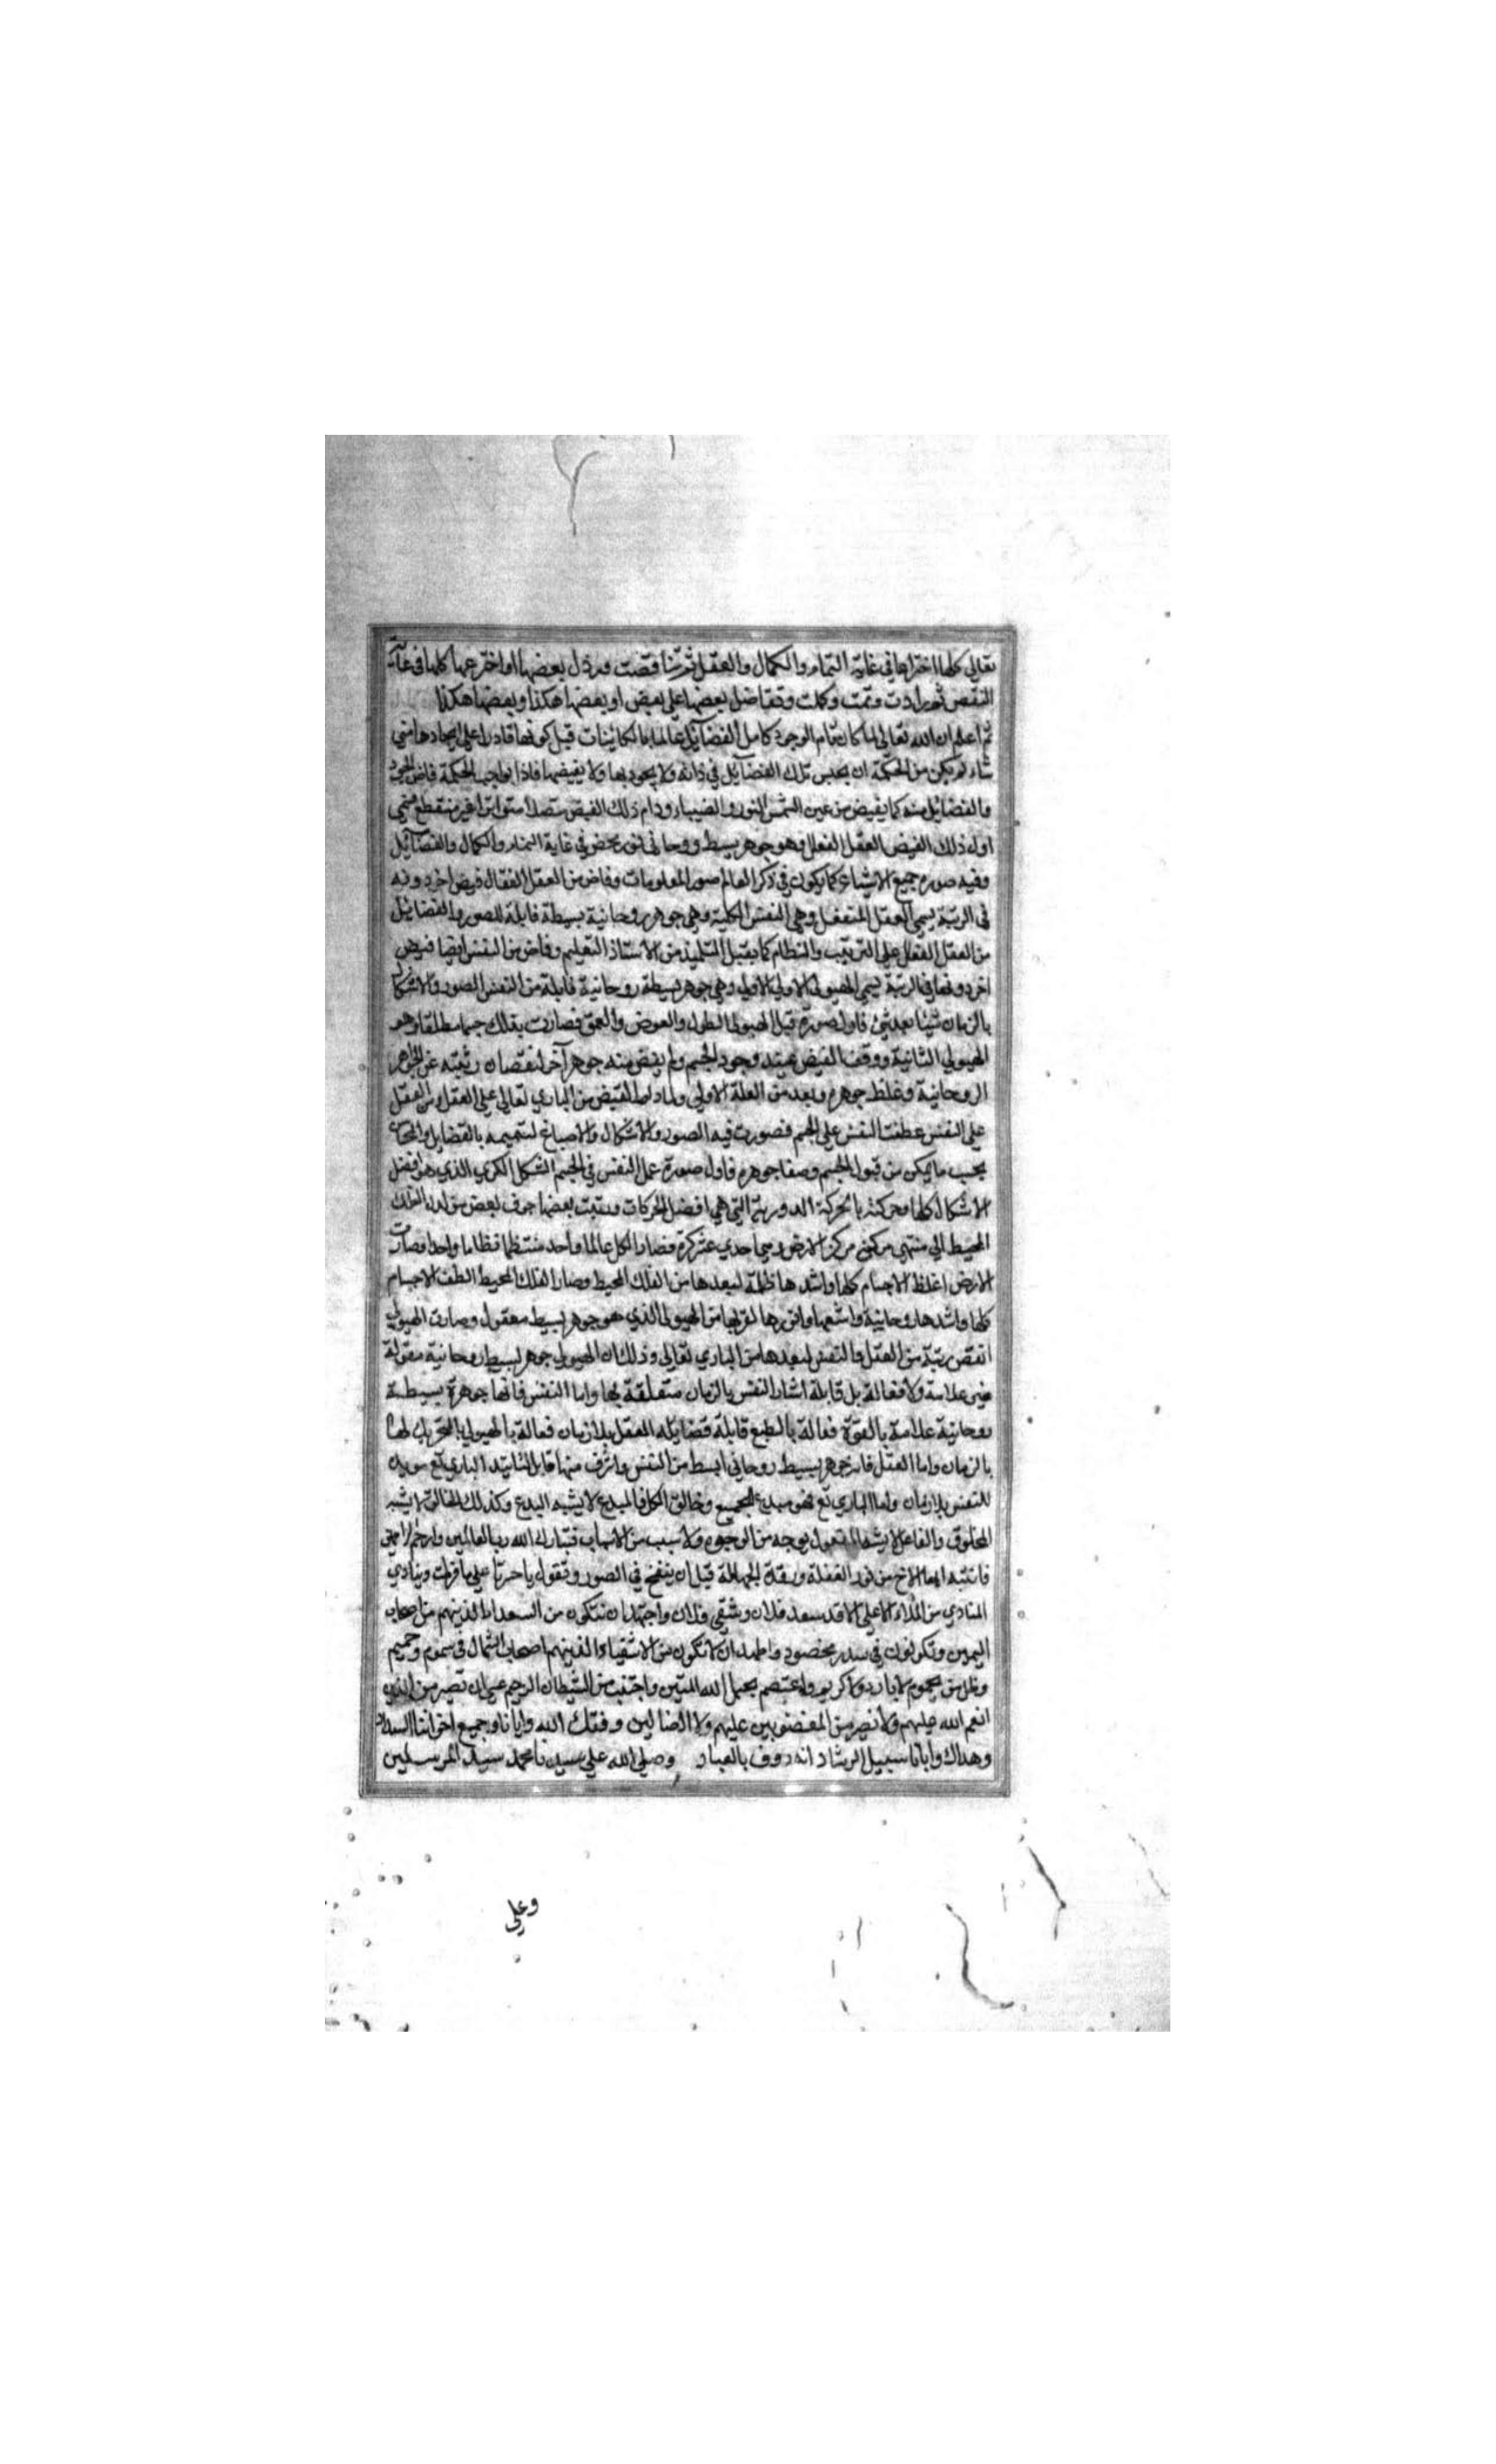 تعالي كلها اخترعها في غاية التمام والكمال والعقل ثم تناقصت ورذل بعضها او اخترعها كلها في غاية
النقص ثم زادت وتمت وكملت وتفاضل بعضها علي بعض او بعضها هكذا وبعضها هكذا
ثم اعلم ان الله تعالي لما كان تام الوجود كامل الفضآيل عالما بالكائنات قبل كونها قادرا علي ايجادها متي
شاء لم يكن من الحكمة ان يحبس تلك الفضآيل في ذاته ولا يجود بها ولا يفيضها فاذا بواجب الحكمة فاض الجود
والفضائل منه كما يفيض من عين الشمس النور والضياء ودام ذلك الفيض متصلا متواترا غير منقطع فسمي
اول ذلك الفيض العقل الفعال وهو جوهر بسيط روحاني نور محض في غاية التمام والكمال والفضآيل
وفيه صورة جميع الاشياء كما يكون في ذكر العالم صور المعلومات وفاض من العقل الفعال فيض اخر دونه
في الرتبة يسمي العقل المنفعل وهي النفس الكلية وهي جوهر روحانية بسيطة قابلة للصور والفضائل
من العقل الفعال علي الترتيب والنظام كما يقبل التلميذ من الاستاذ التعليم وفاض من النفس ايضا فيض
اخر دونها في الرتبة يسمي الهيولي الاولي وهي جوهر بسيطة روحانية قابلة من النفس الصور والاشكال
بالزمان شيئا بعد شئ فاول صورة قبل الهيولي الطول والعرض والعمق فصارت بذلك جسما مطلقا وهو
الهيولي الثانية ووقف الفيض عند وجود الجسم ولم يفض منه جوهر آخر لنقصان رتبته عن الجواهر
الروحانية وغلظ جوهره وبعده من العلة الاولي ولما دام الفيض من الباري تعالي علي العقل ومن العقل
علي النفس عطفت النفس علي الجسم فصورت فيه الصور والاشكال والاصباغ لتتميمه بالفضايل والمحاسن
بحسب ما يمكن من قبول الجسم وصفا جوهره فاول صورة عمل النفس في الجسم الشكل الكري الذي هو افضل
الاشكال كلها وحركته بالحركة الدورية التي هي افضل الحركات ورتبت بعضها جوف بعض من لدن الفلك
المحيط الي منتهي مركز الارض وهي احدي عشر كرة فصار الكل عالما واحدا منتظما نظاما واحدا وصارت
الارض اغلظ الاجسام كلها واشدها ظلمة لبعدها من الفلك المحيط وصار الفلك المحيط الطف الاجسام
كلها واشدها روحانية واشفها وانورها لقربها من الهيولي الذي هو جوهر بسيط معقول وصارت الهيولي
انقص رتبة من العقل والنفس لبعدها من الباري تعالي وذلك ان الهيولي جوهر بسيط روحانية معقولة
غير علامة ولا فعالة بل قابلة اثار النفس بالزمان منفعلة لها واما النفس فانها جوهرة بسيطة
روحانية علامة بالقوة فعالة بالطبع قابلة فضايله العقل بلا زمان فعالة بالهيولي بالتحريك لها
بالزمان واما العقل فانه جوهر بسيط روحاني ابسط من النفس واشرف منها قابل لتاييد الباري تع مويد
للنفس بلا زمان واما الباري تع فهو مبدع الجميع وخالق الكل فالمبدع لا يشبه البدع وكذلك الخالق لا يشبه
المخلوق والفاعل لا يشبه المفعول بوجه من الوجوه ولا سبب من الاسباب فتبارك الله رب العالمين وارحم الراحمين
فانتبه ايها الاخ من نوم الغفلة ورقدة الجهالة قبل ان ينفخ في الصور وتقول يا حسرتا علي ما فرطت وينادي
المنادي من الملاء الاعلي الا قد سعد فلان وشقي فلان واجتهد ان تكون من السعداء الذينهم من اصحاب
اليمين وتكونون في سدر مخضود واجهد ان لا تكون من الاشقياء الذينهم اصحاب الشمال في سموم وحميم
وظل من يحموم لا بارد ولا كريم واعتصم بحبل الله المتين واجتنب من الشيطان الرجيم عسي ان تصير من الذين
انعم الله عليهم ولا تصير من المغضوبين عليهم ولا الضالين وفقك الله وايانا وجميع اخواننا السداد
وهداك وايانا سبيل الرشاد انه رووف بالعباد وصلي الله علي سيدنا محمد سيد المرسلين
وعلي